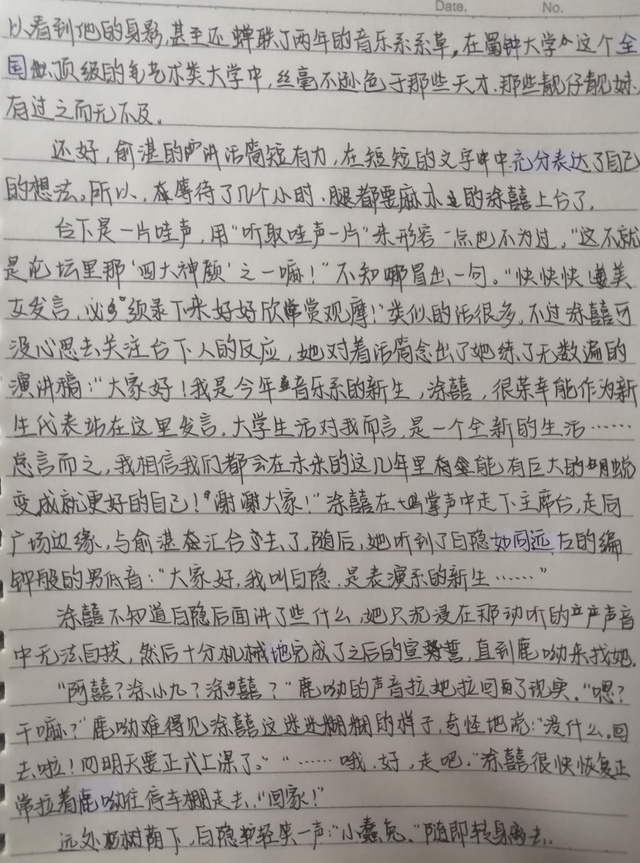 Date. No.
以看到他的身影,甚至还蝉联了两年的音乐系系草。在蜀钟大学这个全
国顶级的艺术类大学中,丝毫不逊色于那些天才、那些靓仔靓妹,
有过之而无不及。
还好,俞湛的讲话简短有力,在短短的文字中充分表达了自己
的想法。所以,在等待了几个小时、腿都要麻木的涂囍上台了。
台下是一片哇声,用“听取哇声一片”来形容一点也不为过,“这不就
是论坛里那‘四大神颜’之一嘛!”不知哪冒出一句。“快快快美
女发言,必须录下来好好欣赏观摩!”类似的话很多,不过涂囍可
没心思去关注台下人的反应,她对着话筒念出了她练了无数遍的
演讲稿:“大家好!我是今年音乐系的新生,涂囍,很荣幸能作为新
生代表站在这里发言,大学生活对我而言,是一个全新的生活……
总言而之,我相信我们都会在未来的这几年里能有巨大的蜕
变成就更好的自己!谢谢大家!”涂囍在掌声中走下主席台,走向
广场边缘,与俞湛汇合去了。随后,她听到了白隐如同远古的编
钟般的男低音:“大家好,我叫白隐,是表演系的新生……”
涂囍不知道白隐后面讲了些什么,她只沉浸在那动听的声音
中无法自拔,然后十分机械地完成了之后的宣誓,直到鹿呦来找她。
“阿囍?涂小九?涂囍?”鹿呦的声音拉她拉回了现实。“嗯?
干嘛?”鹿呦难得见涂囍这迷迷糊糊的样子,奇怪地说:“没什么,回
去啦!明天要正式上课了。”“……哦,好,走吧。”涂囍很快恢复正
常拉着鹿呦往停车棚走去,“回家!”
远处树荫下,白隐轻笑一声:“小蠢兔。”随即转身离去。